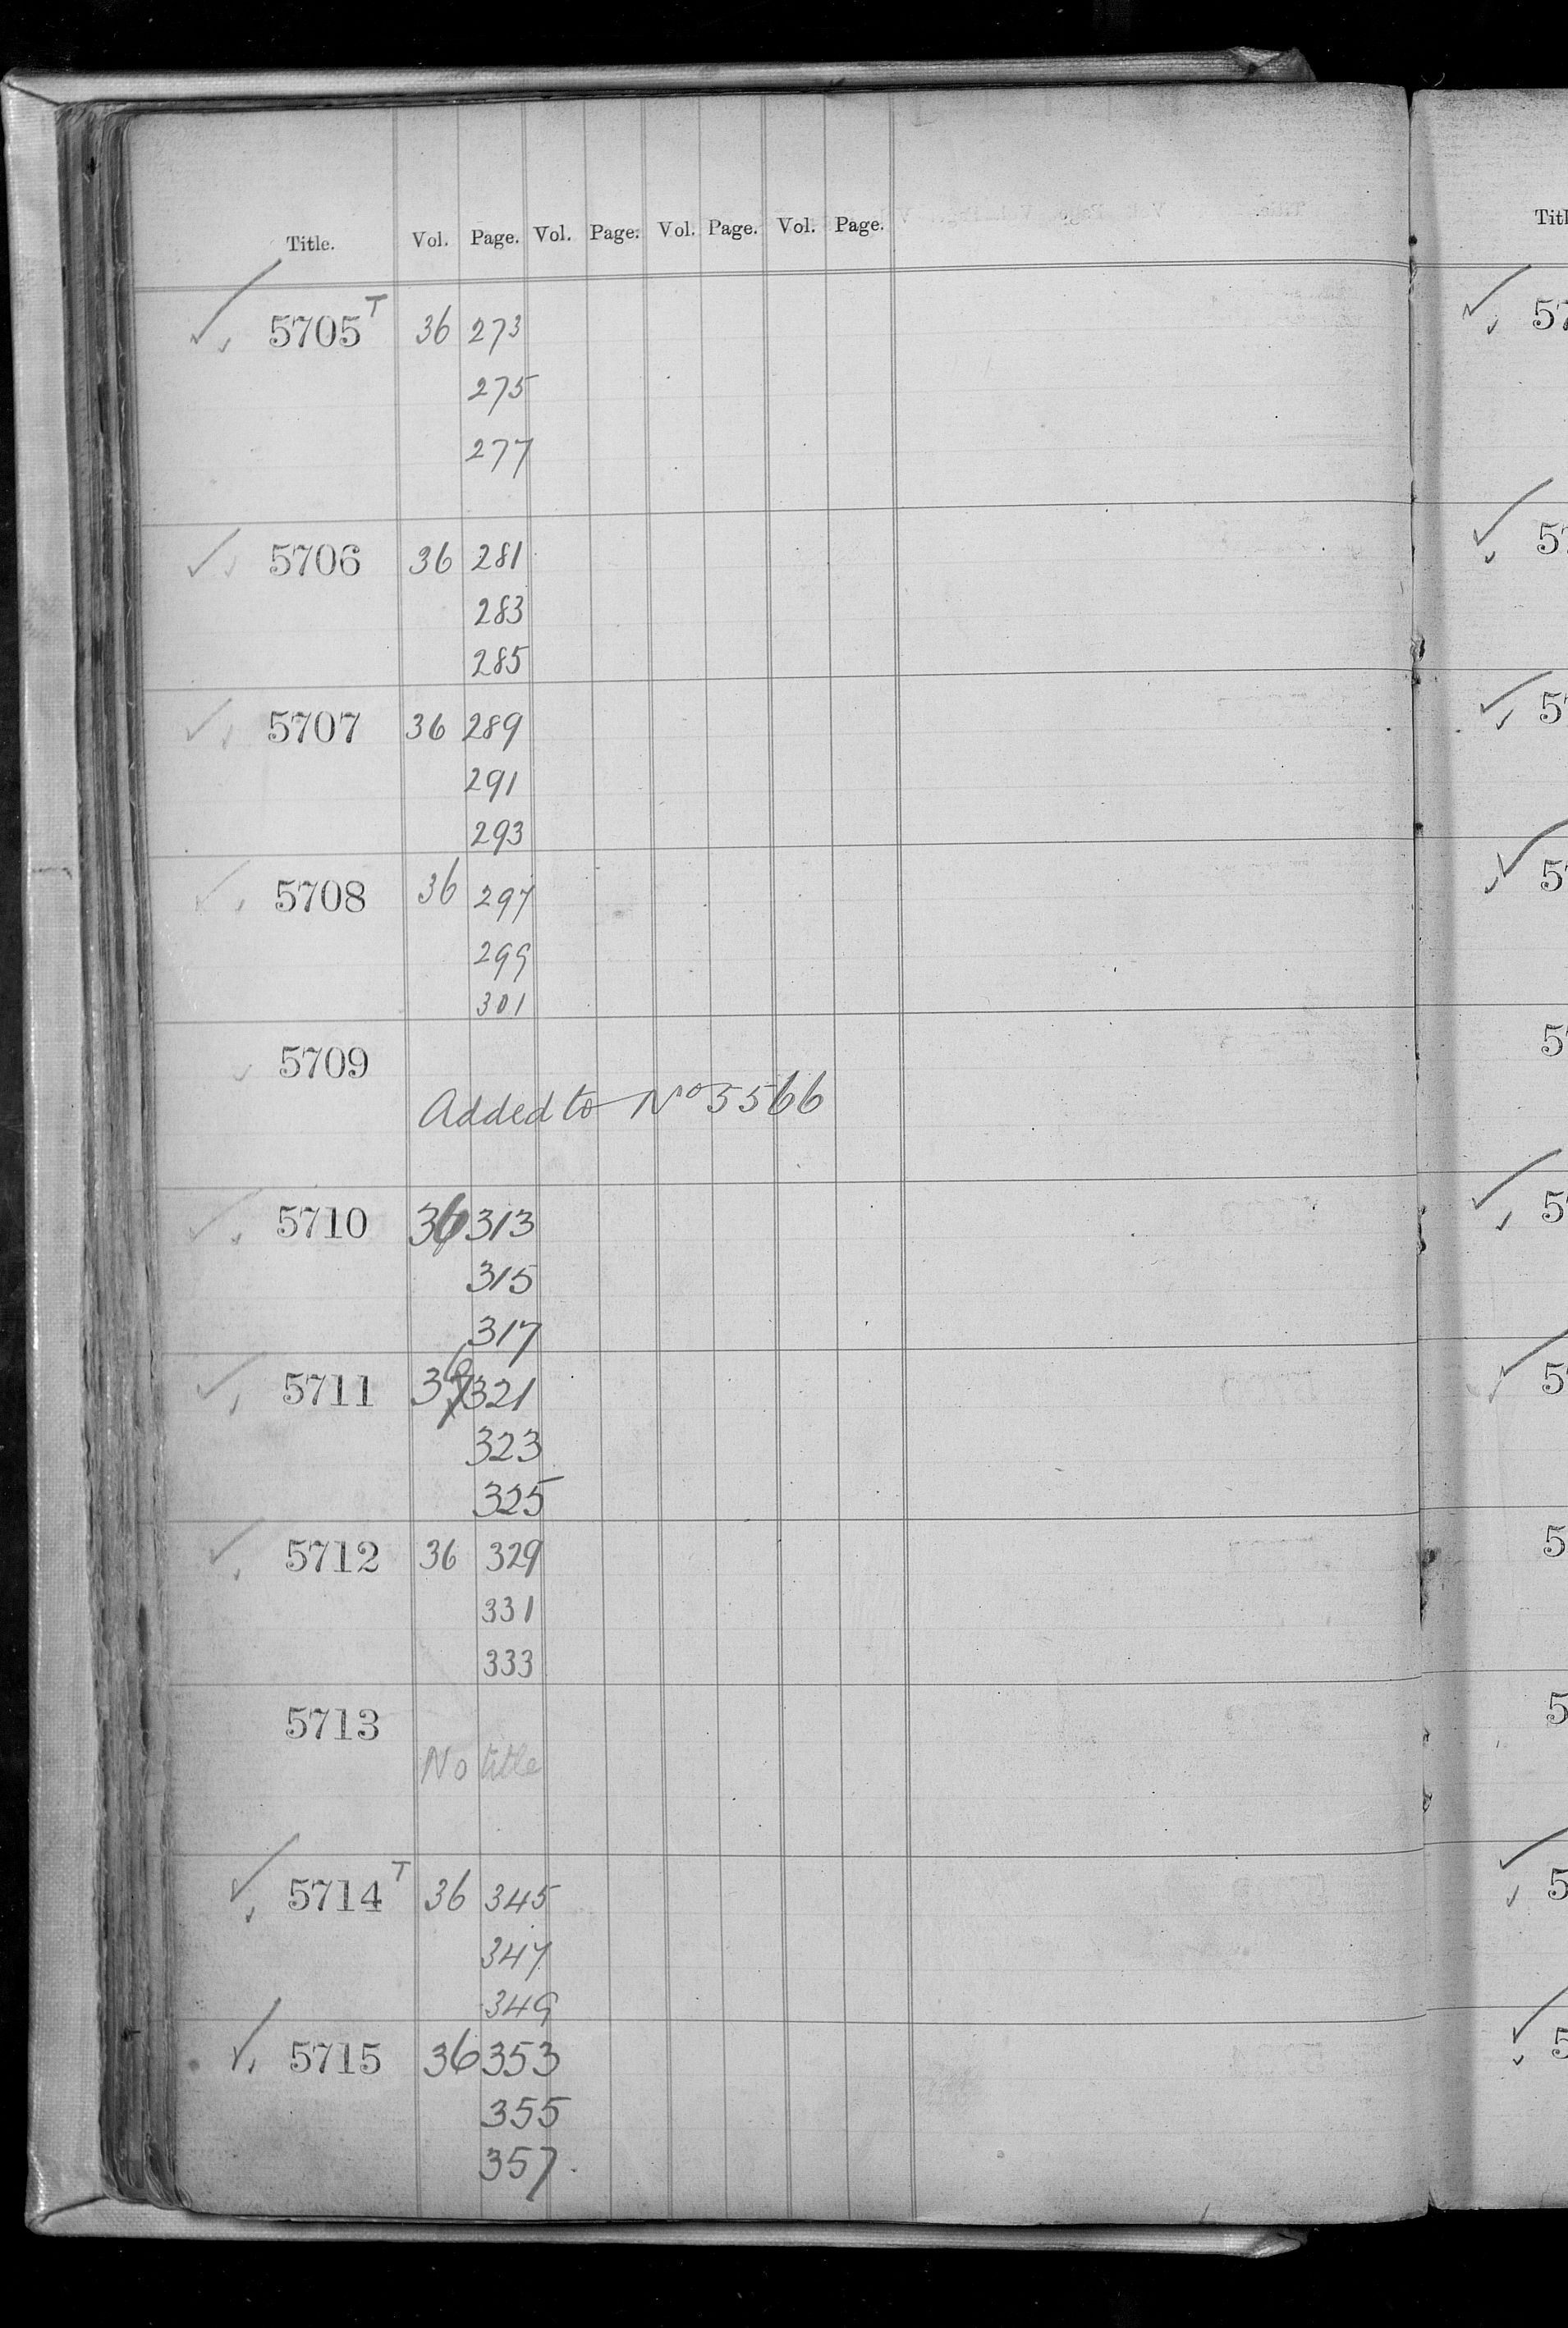 Title. Vol. Page. Vol. Page. Vol. Page. Vol. Page.
5705 T 36 273
275
277
5706 36 281
283
285
5707 36 289
291
293
5708 36 297
299
301
5709
Added to No 5566
5710 36 313
315
317
5711 36 321
323
325
5712 36 329
331
333
5713
No title
5714 T 36 345
347
349
5715 36 353
355
357